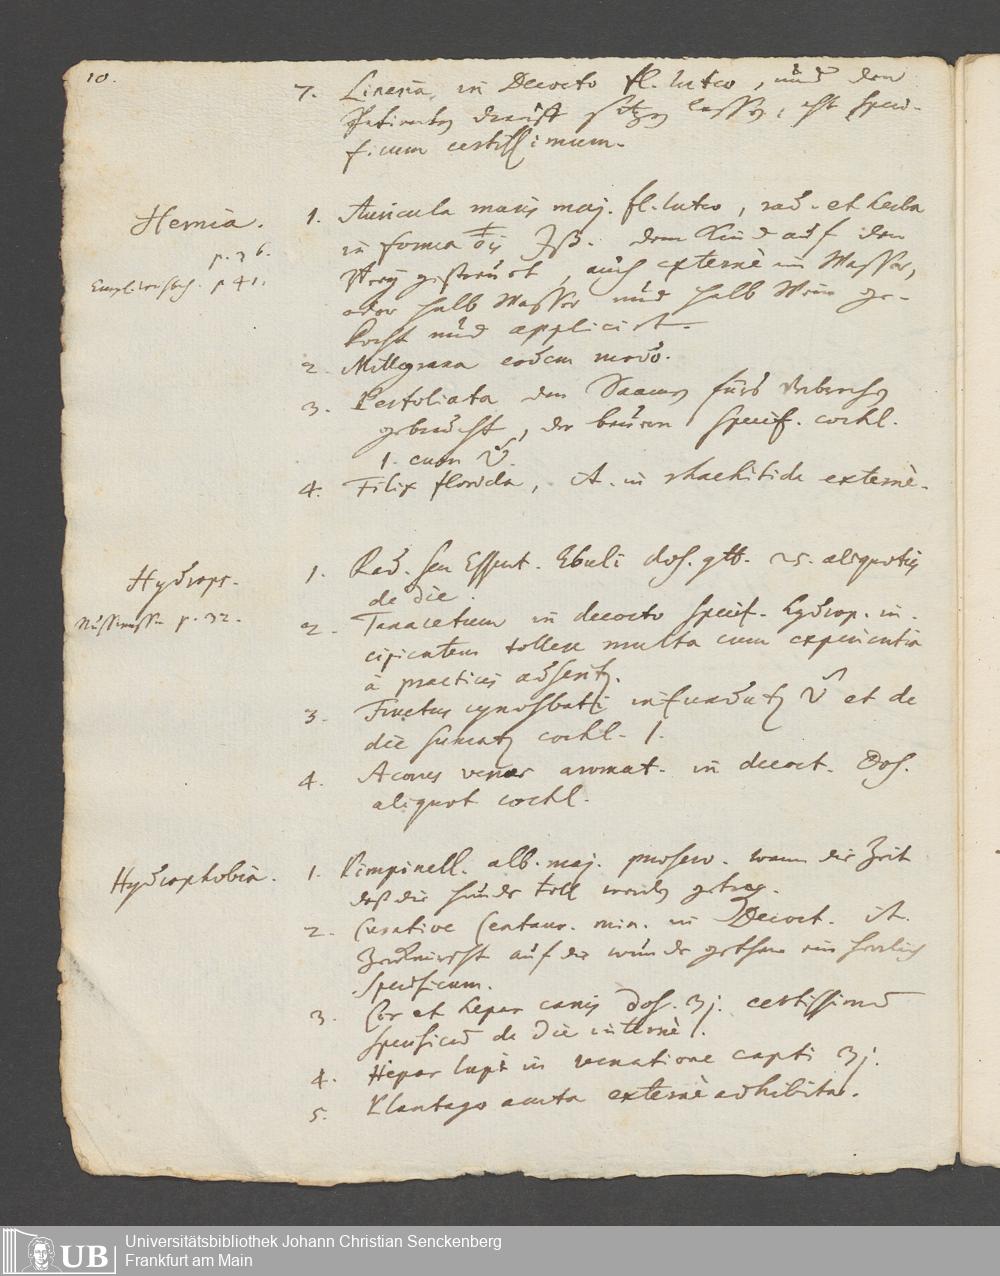 10.
7. Linaria in Decocto fl. luteo, und den
Patienten dreist sitzen lassen, ist speci-
ficum certissimum.
Hernia.
p. 36.
p 41.
1. Auricula muris maj. fl. luteo, rad. et herba
in forma ʒß. dem Kind auf den
Brey gestreut, auch externè in Wasser,
oder halb Wasser und halb Wein ge-
kocht und applicirt.
2. Millegrana eodem modo.
3. Perfoliata den Saamen fürs
gebraucht, der bauren specif. cochl.
1. cum
4. Filix florida, it. in rhachitide externè.
Hydrops.
p. 32.
1. Rad. seu Essent. Ebuli dos. gtt. 25. aliquoties
de die.
2. Tanacetum in decocto specif. hydrop. in-
cipientem tollere multa cum experientia
à practicis
3. Fructus cynosbatti et de
die cochl. 1.
4. Acorus verus aromat. in decoct. Dos.
aliquot cochl.
Hydrophobia.
1. Pimpinell. alb. maj. praeserv. wann die Zeit
daß die Hunde toll werden
2. Curative Centaur. min. in Decoct. it.
auf die wunde gethan ein herrlich
Specificum.
3. Cor et hepar canis Dos. ʒj. certissimū
specificū de die internè.
4. Hepar lupi in venatione capti ʒj.
5. Plantago acuta externè adhibita.
UB
Universitätsbibliothek Johann Christian Senckenberg
Frankfurt am Main